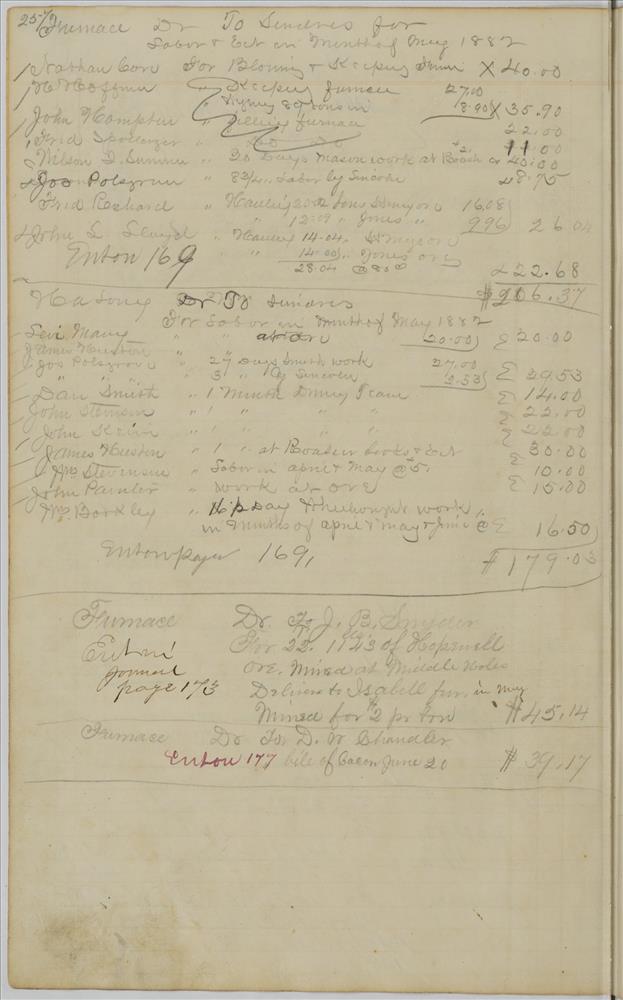 257
Furnace Dr To Sundres for
Labor & Ect in Month of May 1882
Nathan Core For Blowing & Keeping Furn X 40.00
H Hoffman " Keeping furnace 27.00
" 89 tons in 8.90 X 35.90
John Hampton " Filling furnace 22.00
Frid " do do 11.00
Nilson D. " 20 Days Mason work at Roach 40.00
Jos Polsgrun " 83/4 Labor by Lincoln 8.75
Frid Reshard " Hauling 20.02 tons Ore 16.08
" 12.09 " Jones " 996 26 04
John L. Lloyd " Hauling 14.04 Ore
" " 14.00 " Jones ore
28.04 @ 80¢ 22.68
Enton 169 $206.37
Masonry Dr To Sundres
For Labor in Month of May 1882
Levi Many " " at Ore 20.00 20.00
James Huston "
Jos Polsgrove " 27 Days Smith work 27.00
" " " 3 " by Lincoln 2.53 29.53
Dav Smith " 1 Month Driving Team 14.00
John Stenson " 1 " " " 22.00
John Keiin " 1 " " " 22.00
James Huston " 1 " at Roaster books & Ect 30.00
Wm Stevenson " Labor in april & May @ 5. 10.00
John Painter " Work at Ore 15.00
Wm Barkley " 16½ Day work
in Months of april & may & June @ 16.50
Enton page 169, $179.03
Furnace Dr. To J. B. Snyder
Ent in For 22.1143 of Hopewell
Journal Ore. Mined at Middle Holes
page 173 Deliver to Isabell fur. in May
Mined for $2 pr ton $45.14
Furnace Dr To D. W Chandler
Enton 177 bile of Bacon June 20 $39.17